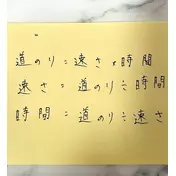 道のり = 速さ × 時間
速さ = 道のり ÷ 時間
時間 = 道のり ÷ 速さ